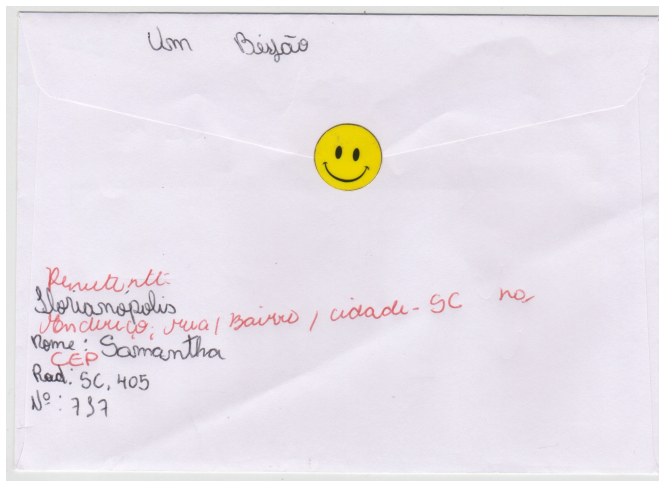 Um Beijão
Remetente:
Florianópolis
Endereço: rua/Bairro/cidade-SC no,
Nome: Samantha
CEP
Rod: SC, 405
Nº: 737